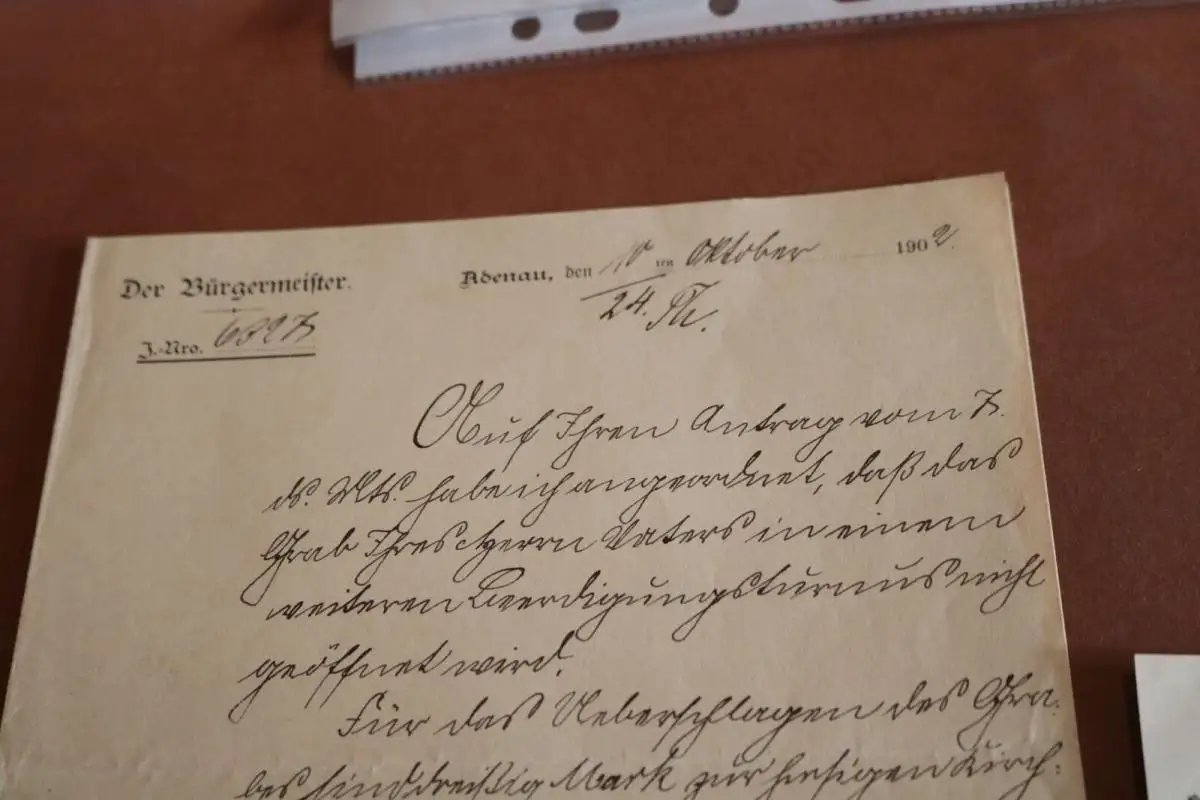 Der Bürgermeister.
Adenau, den 10 ten Oktober 1902.
24.
J.-Nro. 6327
Auf Ihren Antrag vom 7.
ds. Mts. habe ich angeordnet, daß das
Grab Ihres Herrn Vaters in einem
weiteren Beerdigungsturnus nicht
geöffnet wird.
Für das Ueberschlagen des Gra-
bes sind dreißig Mark zur hiesigen Kirch-